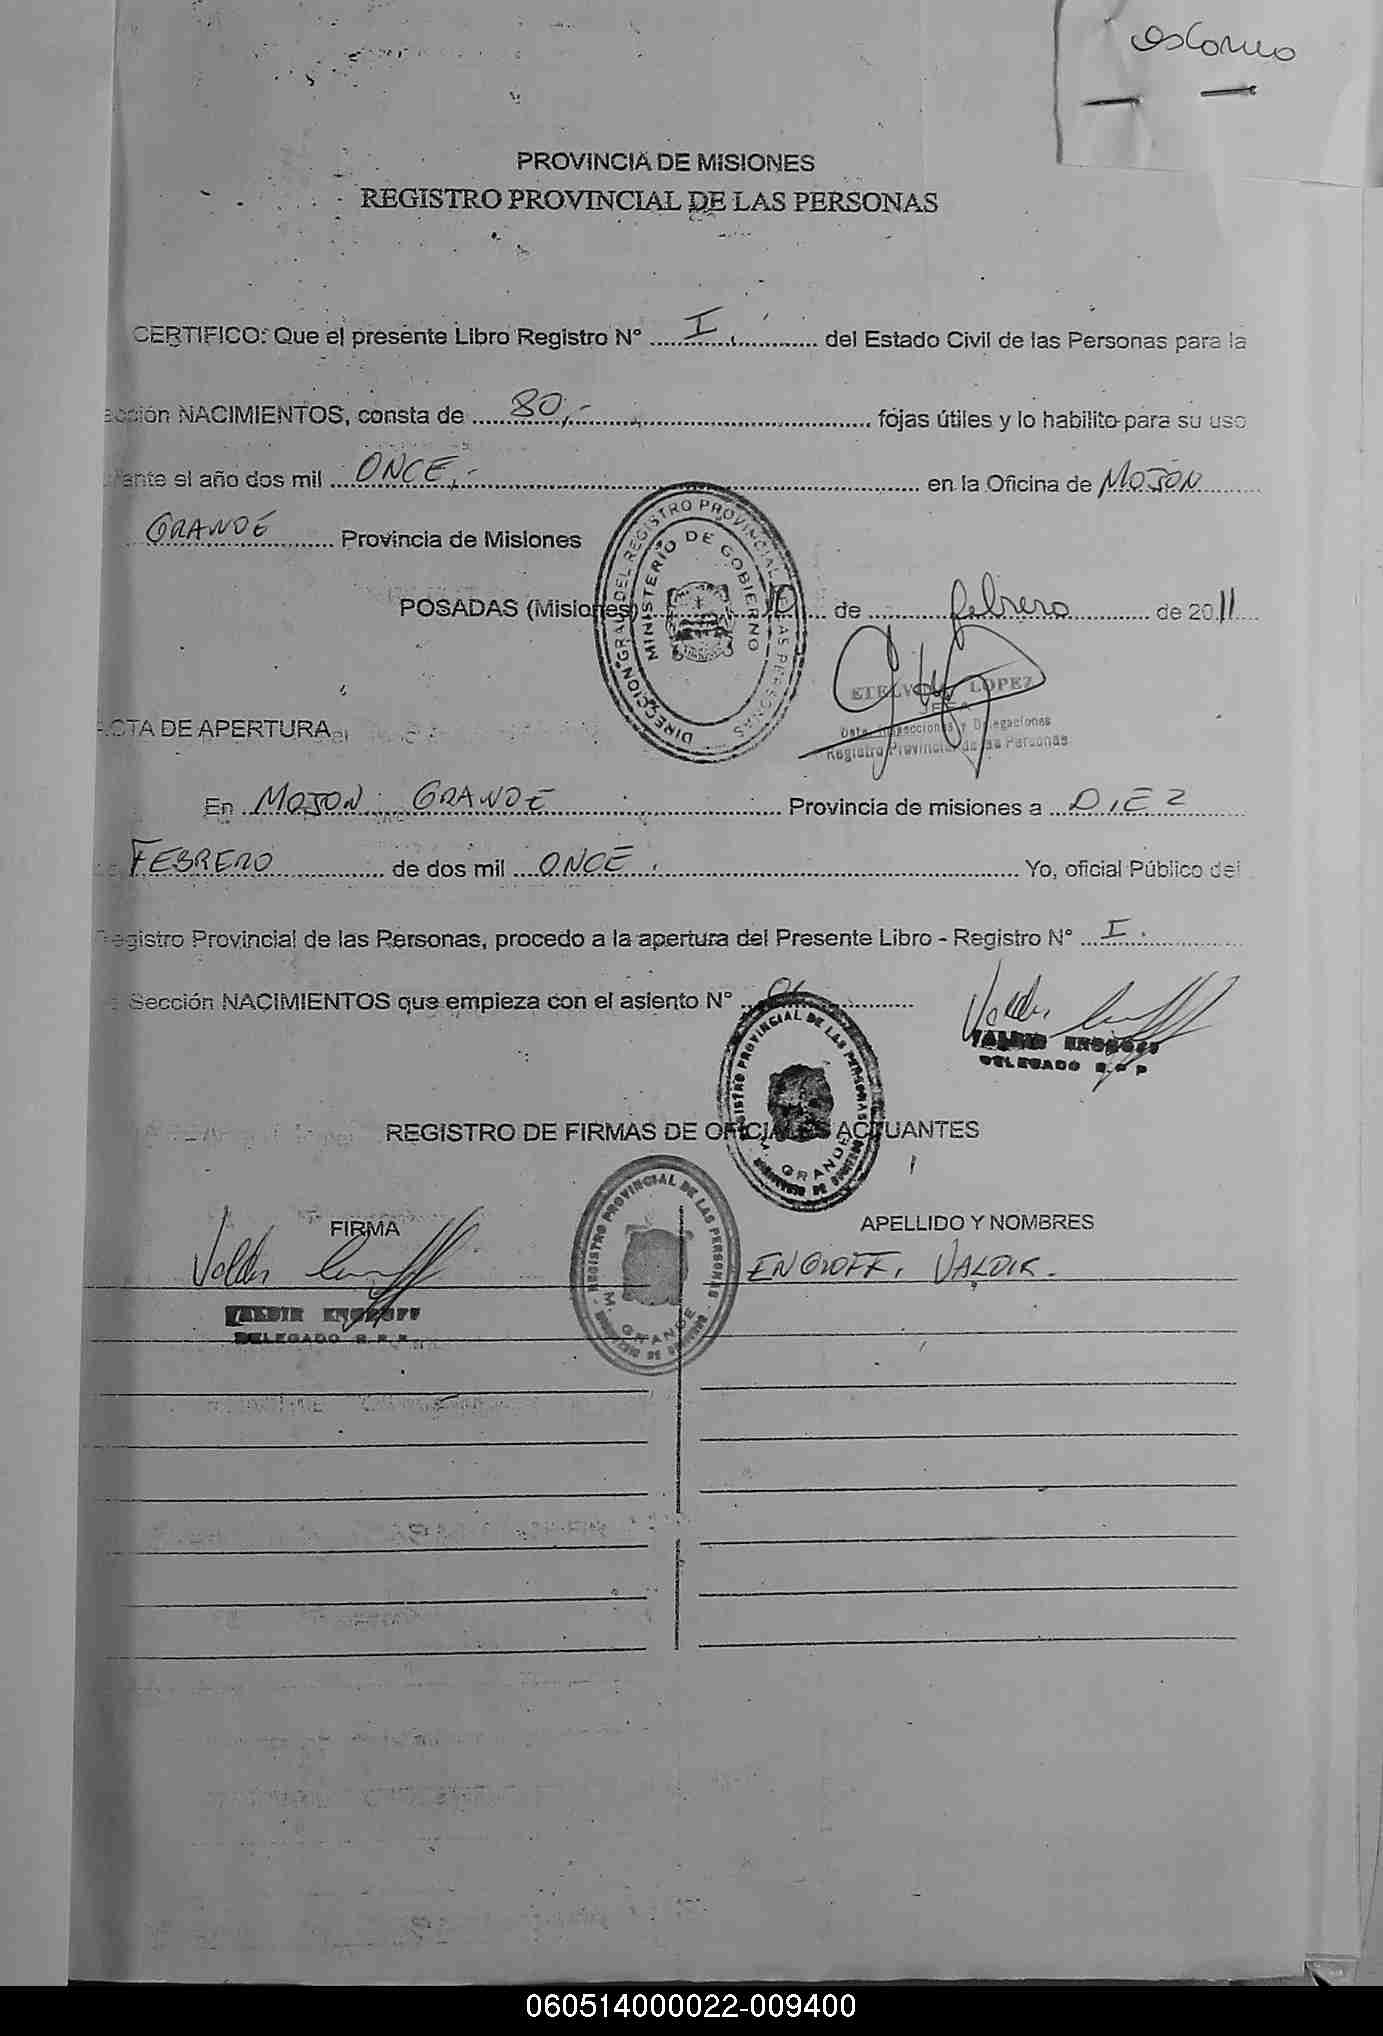 PROVINCIA DE MISIONES
REGISTRO PROVINCIAL DE LAS PERSONAS
CERTIFICO: Que el presente Libro Registro Nº I. del Estado Civil de las Personas para la
cción NACIMIENTOS, consta de 80,- fojas útiles y lo habilito para su uso
ante el año dos mil ONCE,- en la Oficina de MOJON
GRANDE Provincia de Misiones
DIRECCION GRAL DEL REGISTRO PROVINCIAL DE LAS PERSONAS
MINISTERIO DE GOBIERNO
POSADAS (Misiones) 10 de febrero de 2011
LOPEZ
JEFA
Dpto. Inspecciones y Delegaciones
Registro Provincial de las Personas
ACTA DE APERTURA
En MOJON GRANDE Provincia de misiones a DIEZ
FEBRERO de dos mil ONCE. Yo, oficial Público del
Registro Provincial de las Personas, procedo a la apertura del Presente Libro - Registro Nº I.
Sección NACIMIENTOS que empieza con el asiento Nº 01
VALDIR ENGROFF
DELEGADO R.P.P
REGISTRO PROVINCIAL DE LAS PERSONAS
M. GRANDE
REGISTRO DE FIRMAS DE OFICIALES ACTUANTES
FIRMA APELLIDO Y NOMBRES
ENGROFF, VALDIR.
VALDIR ENGROFF
DELEGADO R.P.P.
REGISTRO PROVINCIAL DE LAS PERSONAS
M. GRANDE
060514000022-009400